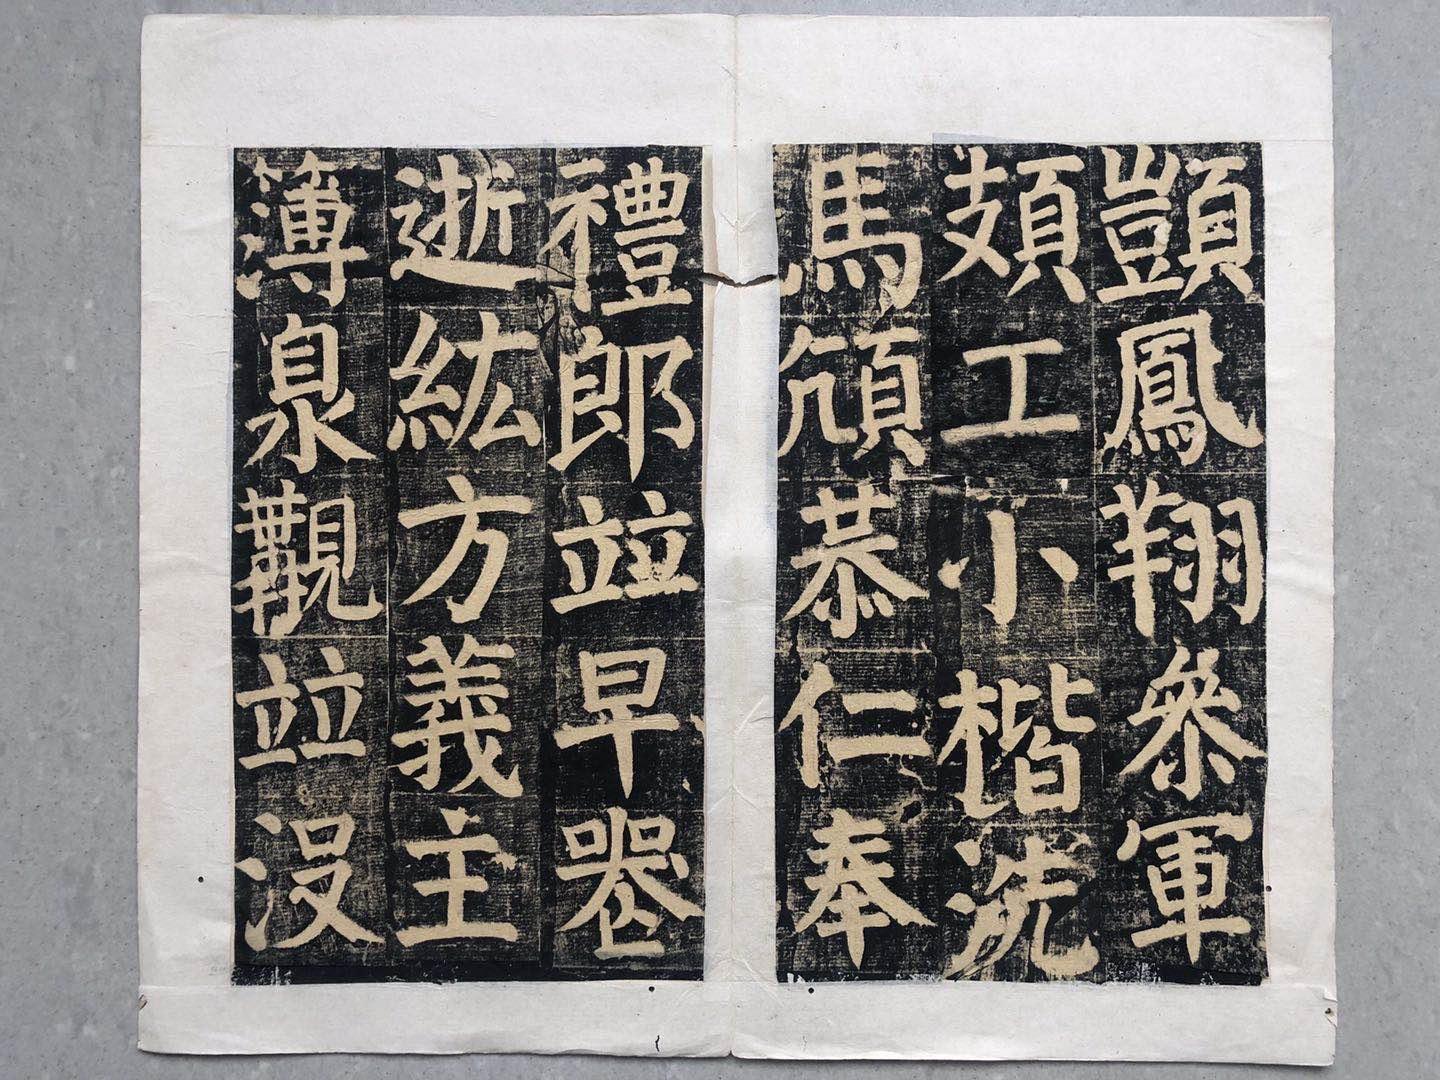 顗鳳翔參軍
頍工小楷洗
馬頎恭仁奉
禮郎竝早喪
逝紘方義主
簿泉觀竝沒